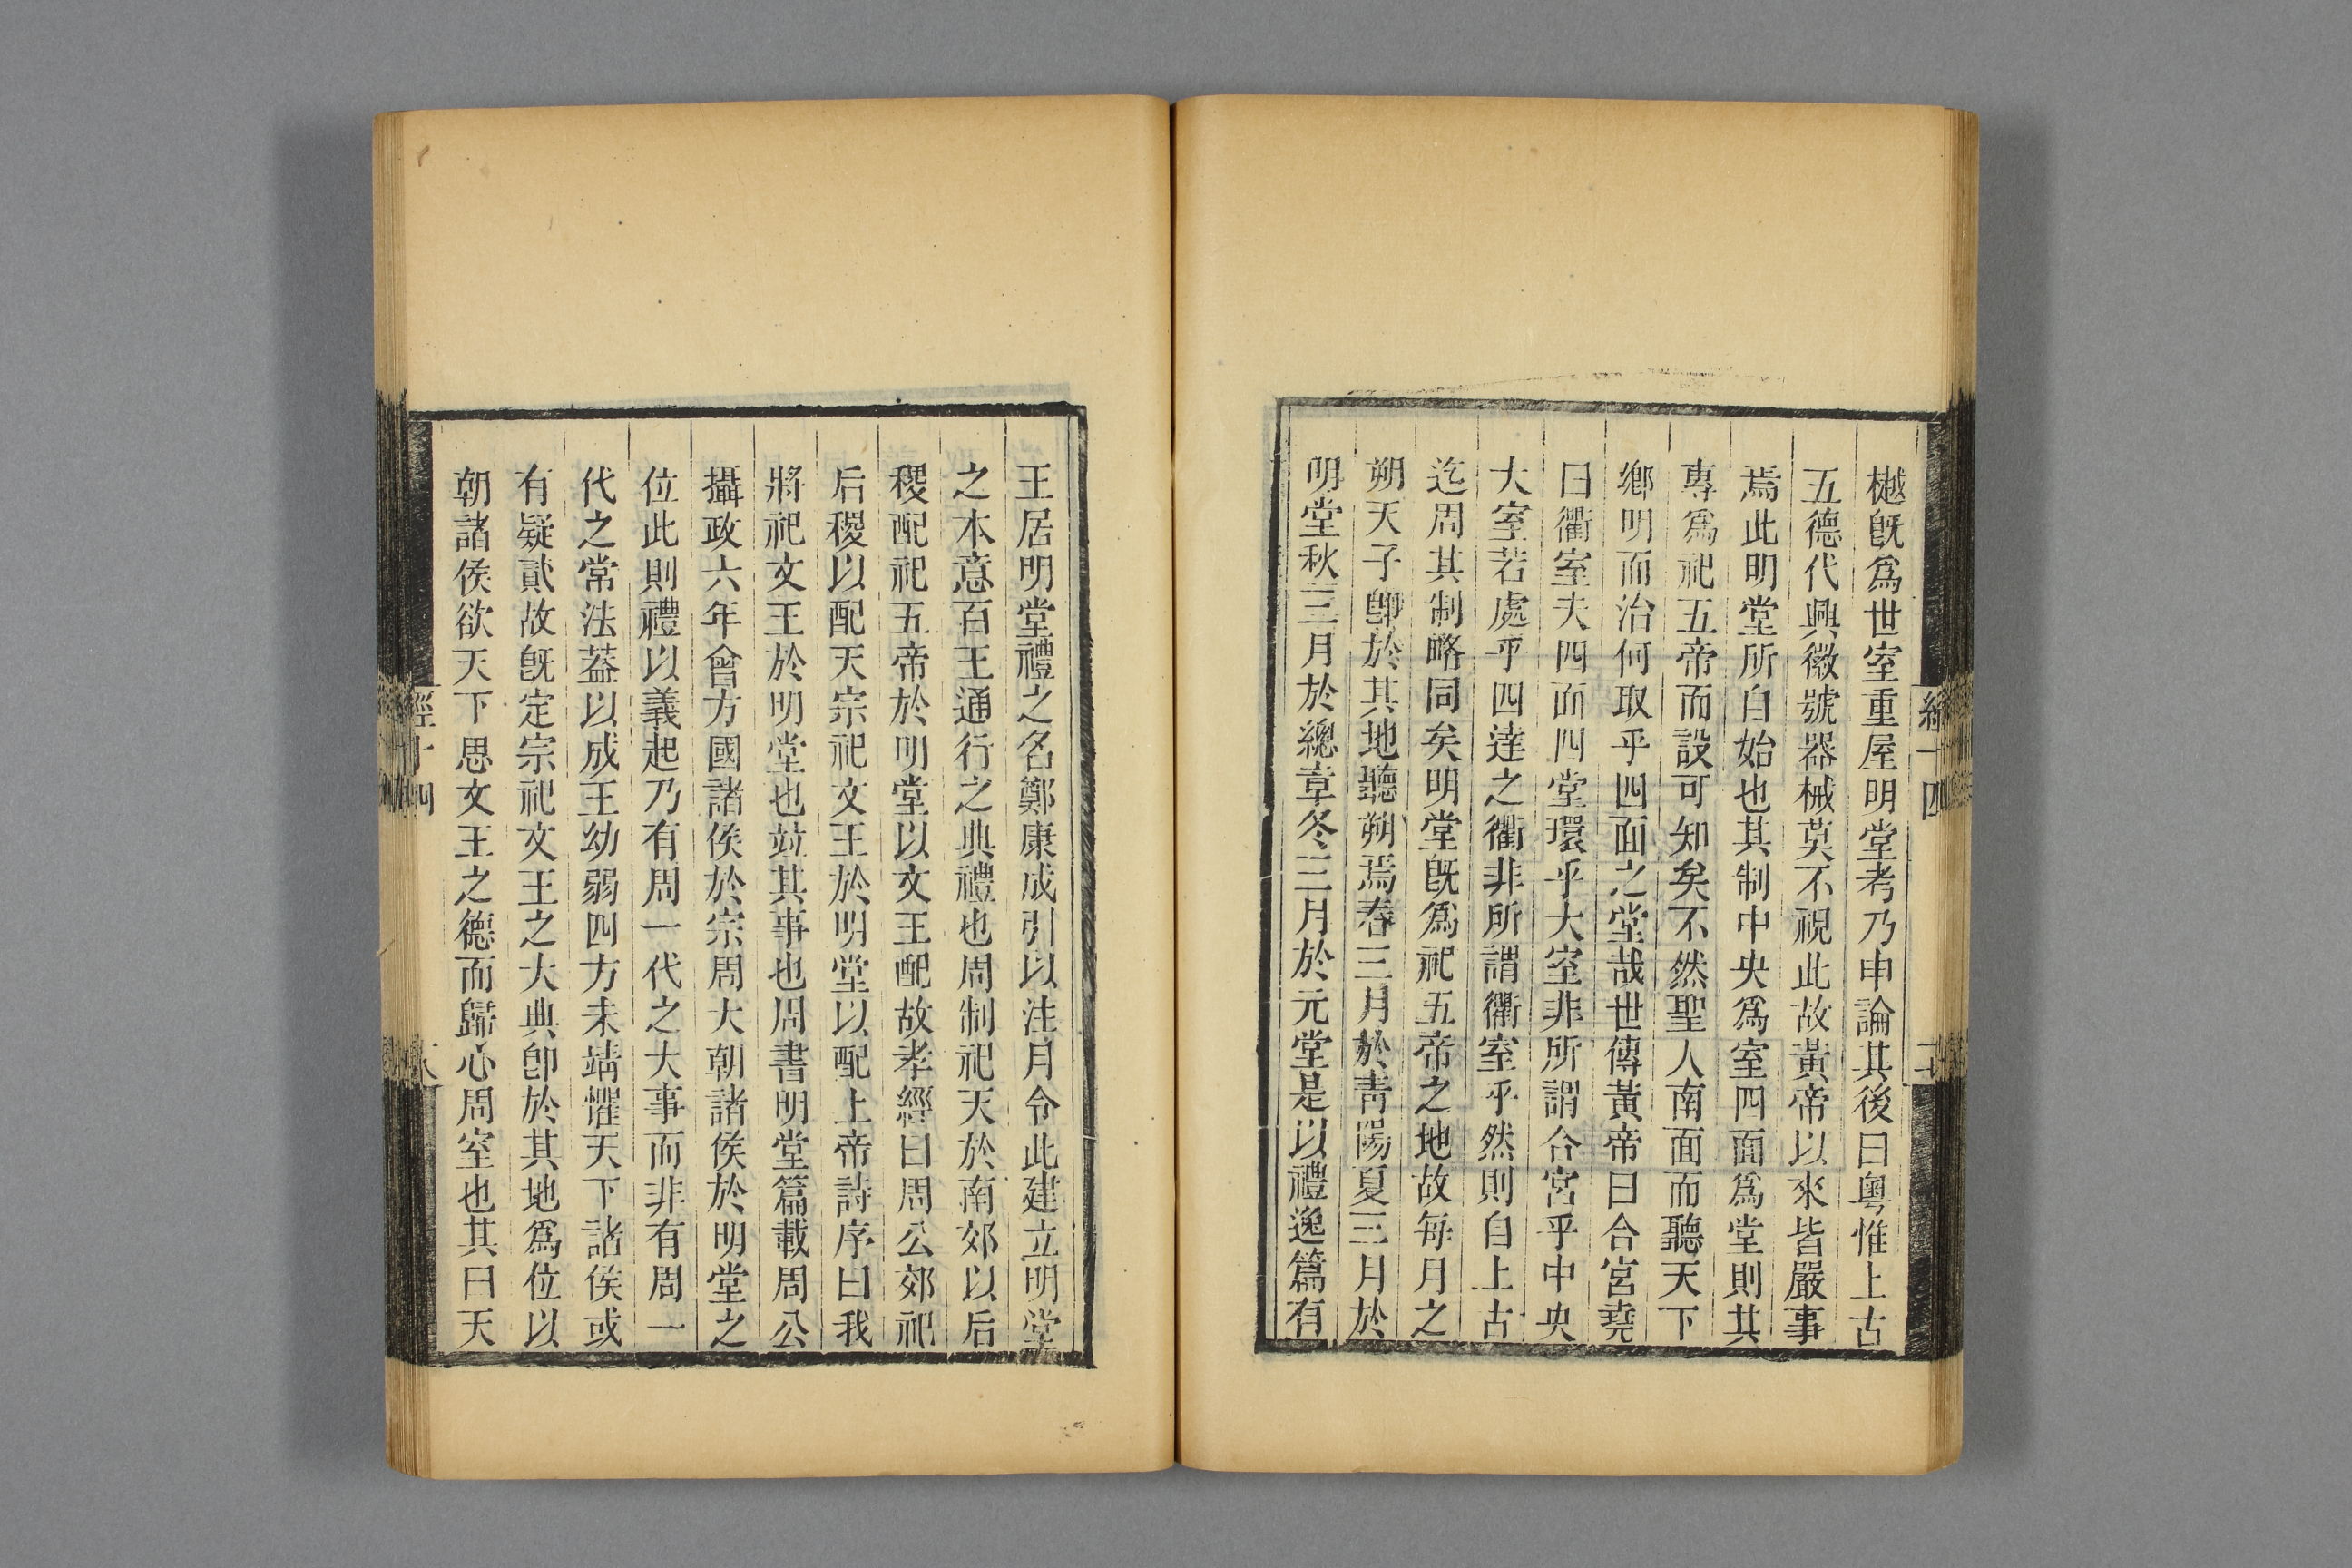 樾旣爲世室重屋明堂考乃申論其後曰粤惟上古
五德代興徽號器械莫不視此故黃帝以來皆嚴事
焉此明堂所自始也其制中央爲室四面爲堂則其
專爲祀五帝而設可知矣不然聖人南面而聽天下
鄉明而治何取乎四面之堂哉世傳黃帝曰合宮堯
曰衢室夫四面四堂環乎大室非所謂合宮乎中央
大室若處乎四達之衢非所謂衢室乎然則自上古
迄周其制略同矣明堂旣爲祀五帝之地故每月之
朔天子卽於其地聽朔焉春三月於靑陽夏三月於
明堂秋三月於總章冬三月於元堂是以禮逸篇有
王居明堂禮之名鄭康成引以注月令此建立明堂
之本意百王通行之典禮也周制祀天於南郊以后
稷配祀五帝於明堂以文王配故孝經曰周公郊祀
后稷以配天宗祀文王於明堂以配上帝詩序曰我
將祀文王於明堂也竝其事也周書明堂篇載周公
攝政六年會方國諸侯於宗周大朝諸侯於明堂之
位此則禮以義起乃有周一代之大事而非有周一
代之常法葢以成王幼弱四方未靖懼天下諸侯或
有疑貳故旣定宗祀文王之大典卽於其地爲位以
朝諸侯欲天下思文王之德而歸心周室也其曰天
經十四